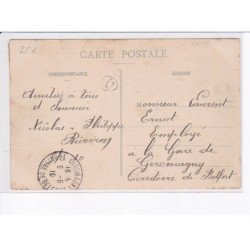 CARTE POSTALE
CORRESPONDANCE
ADRESSE
Amitiés à tous
et Souvenir
Nicolas & Philippe
Monsieur Laurent
Ernest
Employé
à la Gare de
Giromagny
Territoire de Belfort